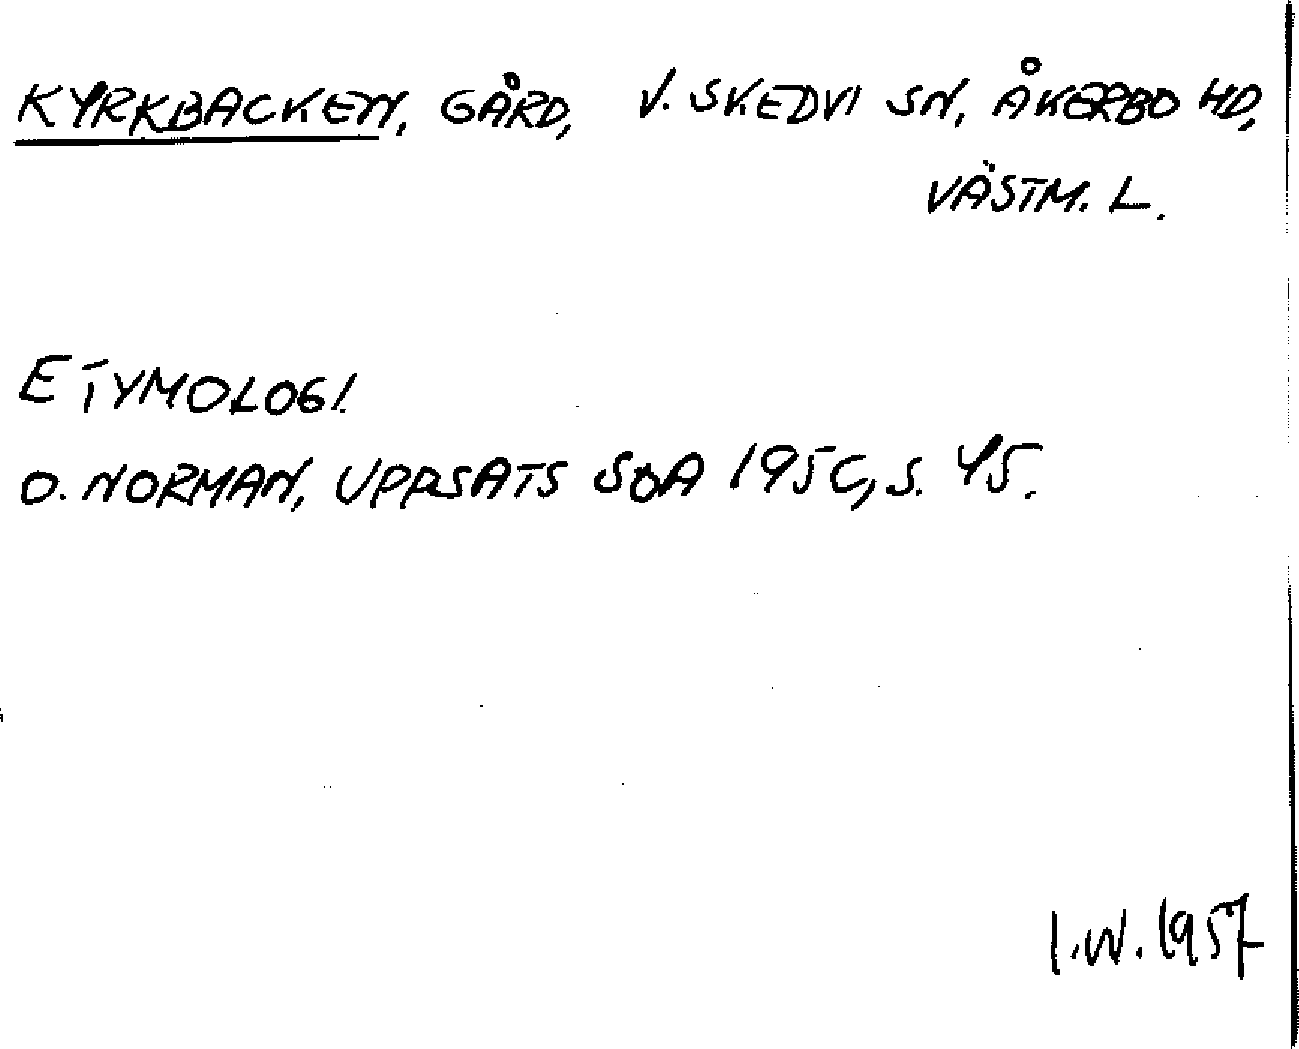 KYRKBACKEN, GÅRD, V. SKEDVI SN, ÅKERBO HD,
VÄSTM. L.
ETYMOLOGI.
O. NORMAN, UPPSATS SOA 1956, S. 45.
I.W. 1957